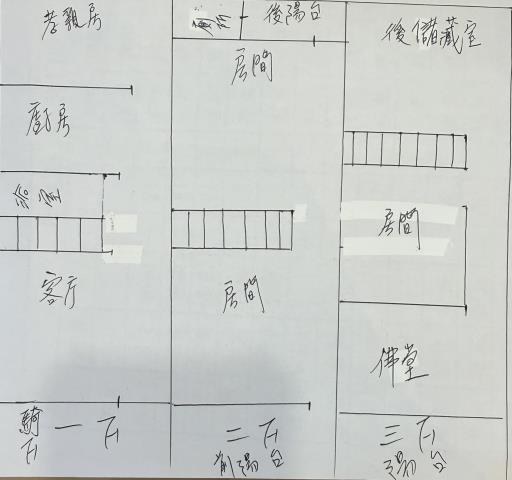 孝親房
廚房
客厅
騎
下
一下
後陽台
房間
房間
二下
前陽台
後儲藏室
房間
佛堂
三下
陽台